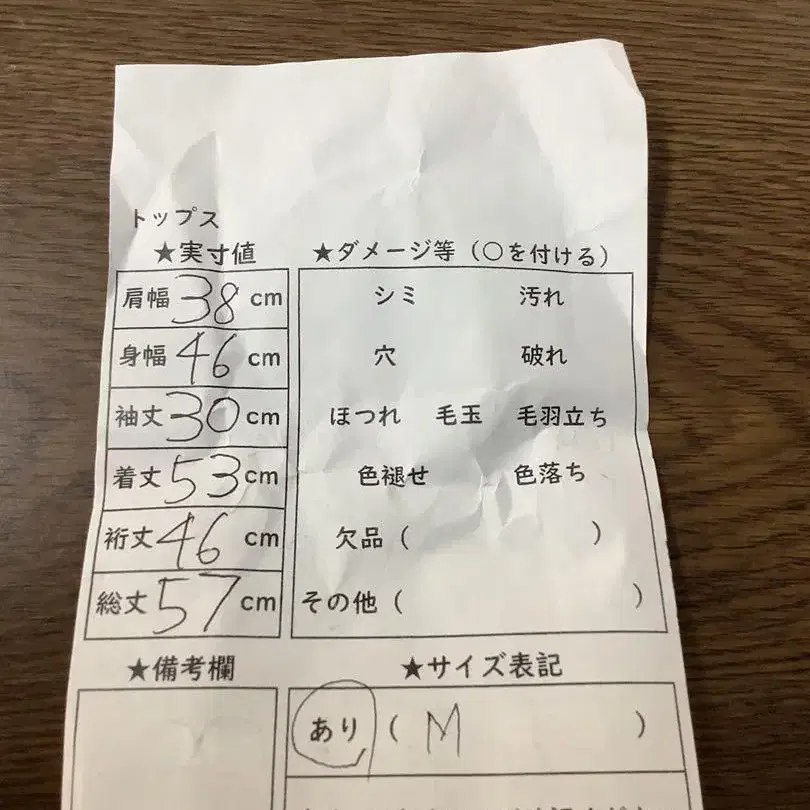 トップス
★実寸値
肩幅 38 cm
身幅 46 cm
袖丈 30 cm
着丈 53 cm
裄丈 46 cm
総丈 57 cm
★ダメージ等（○を付ける）
シミ 汚れ
穴 破れ
ほつれ 毛玉 毛羽立ち
色褪せ 色落ち
欠品（ ）
その他（ ）
★備考欄
★サイズ表記
あり（ M ）